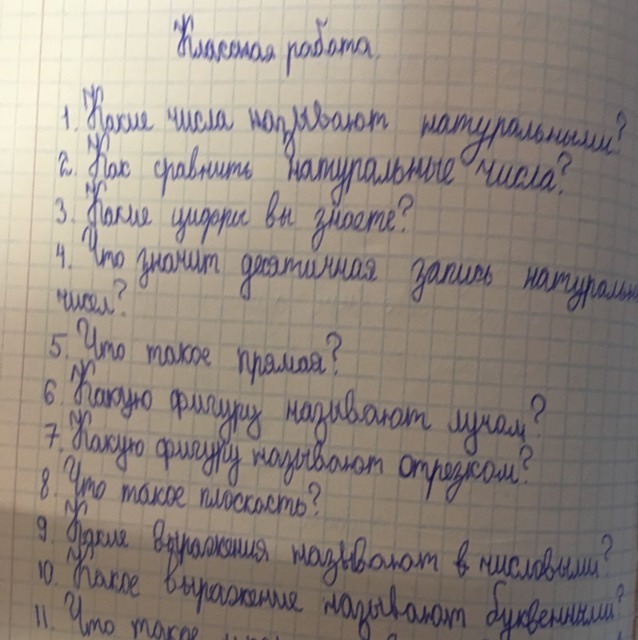 Классная работа.
1. Какие числа называют натуральными?
2. Как сравнить натуральные числа?
3. Какие цифры вы знаете?
4. Что значит десятичная запись натуральн
чисел?
5. Что такое прямая?
6. Какую фигуру називают лучом?
7. Какую фигуру называют отрезком?
8. Что такое плоскость?
9. Какие выражения называют в числовыми?
10. Какое выражение называют буквенными?
11. Что такое